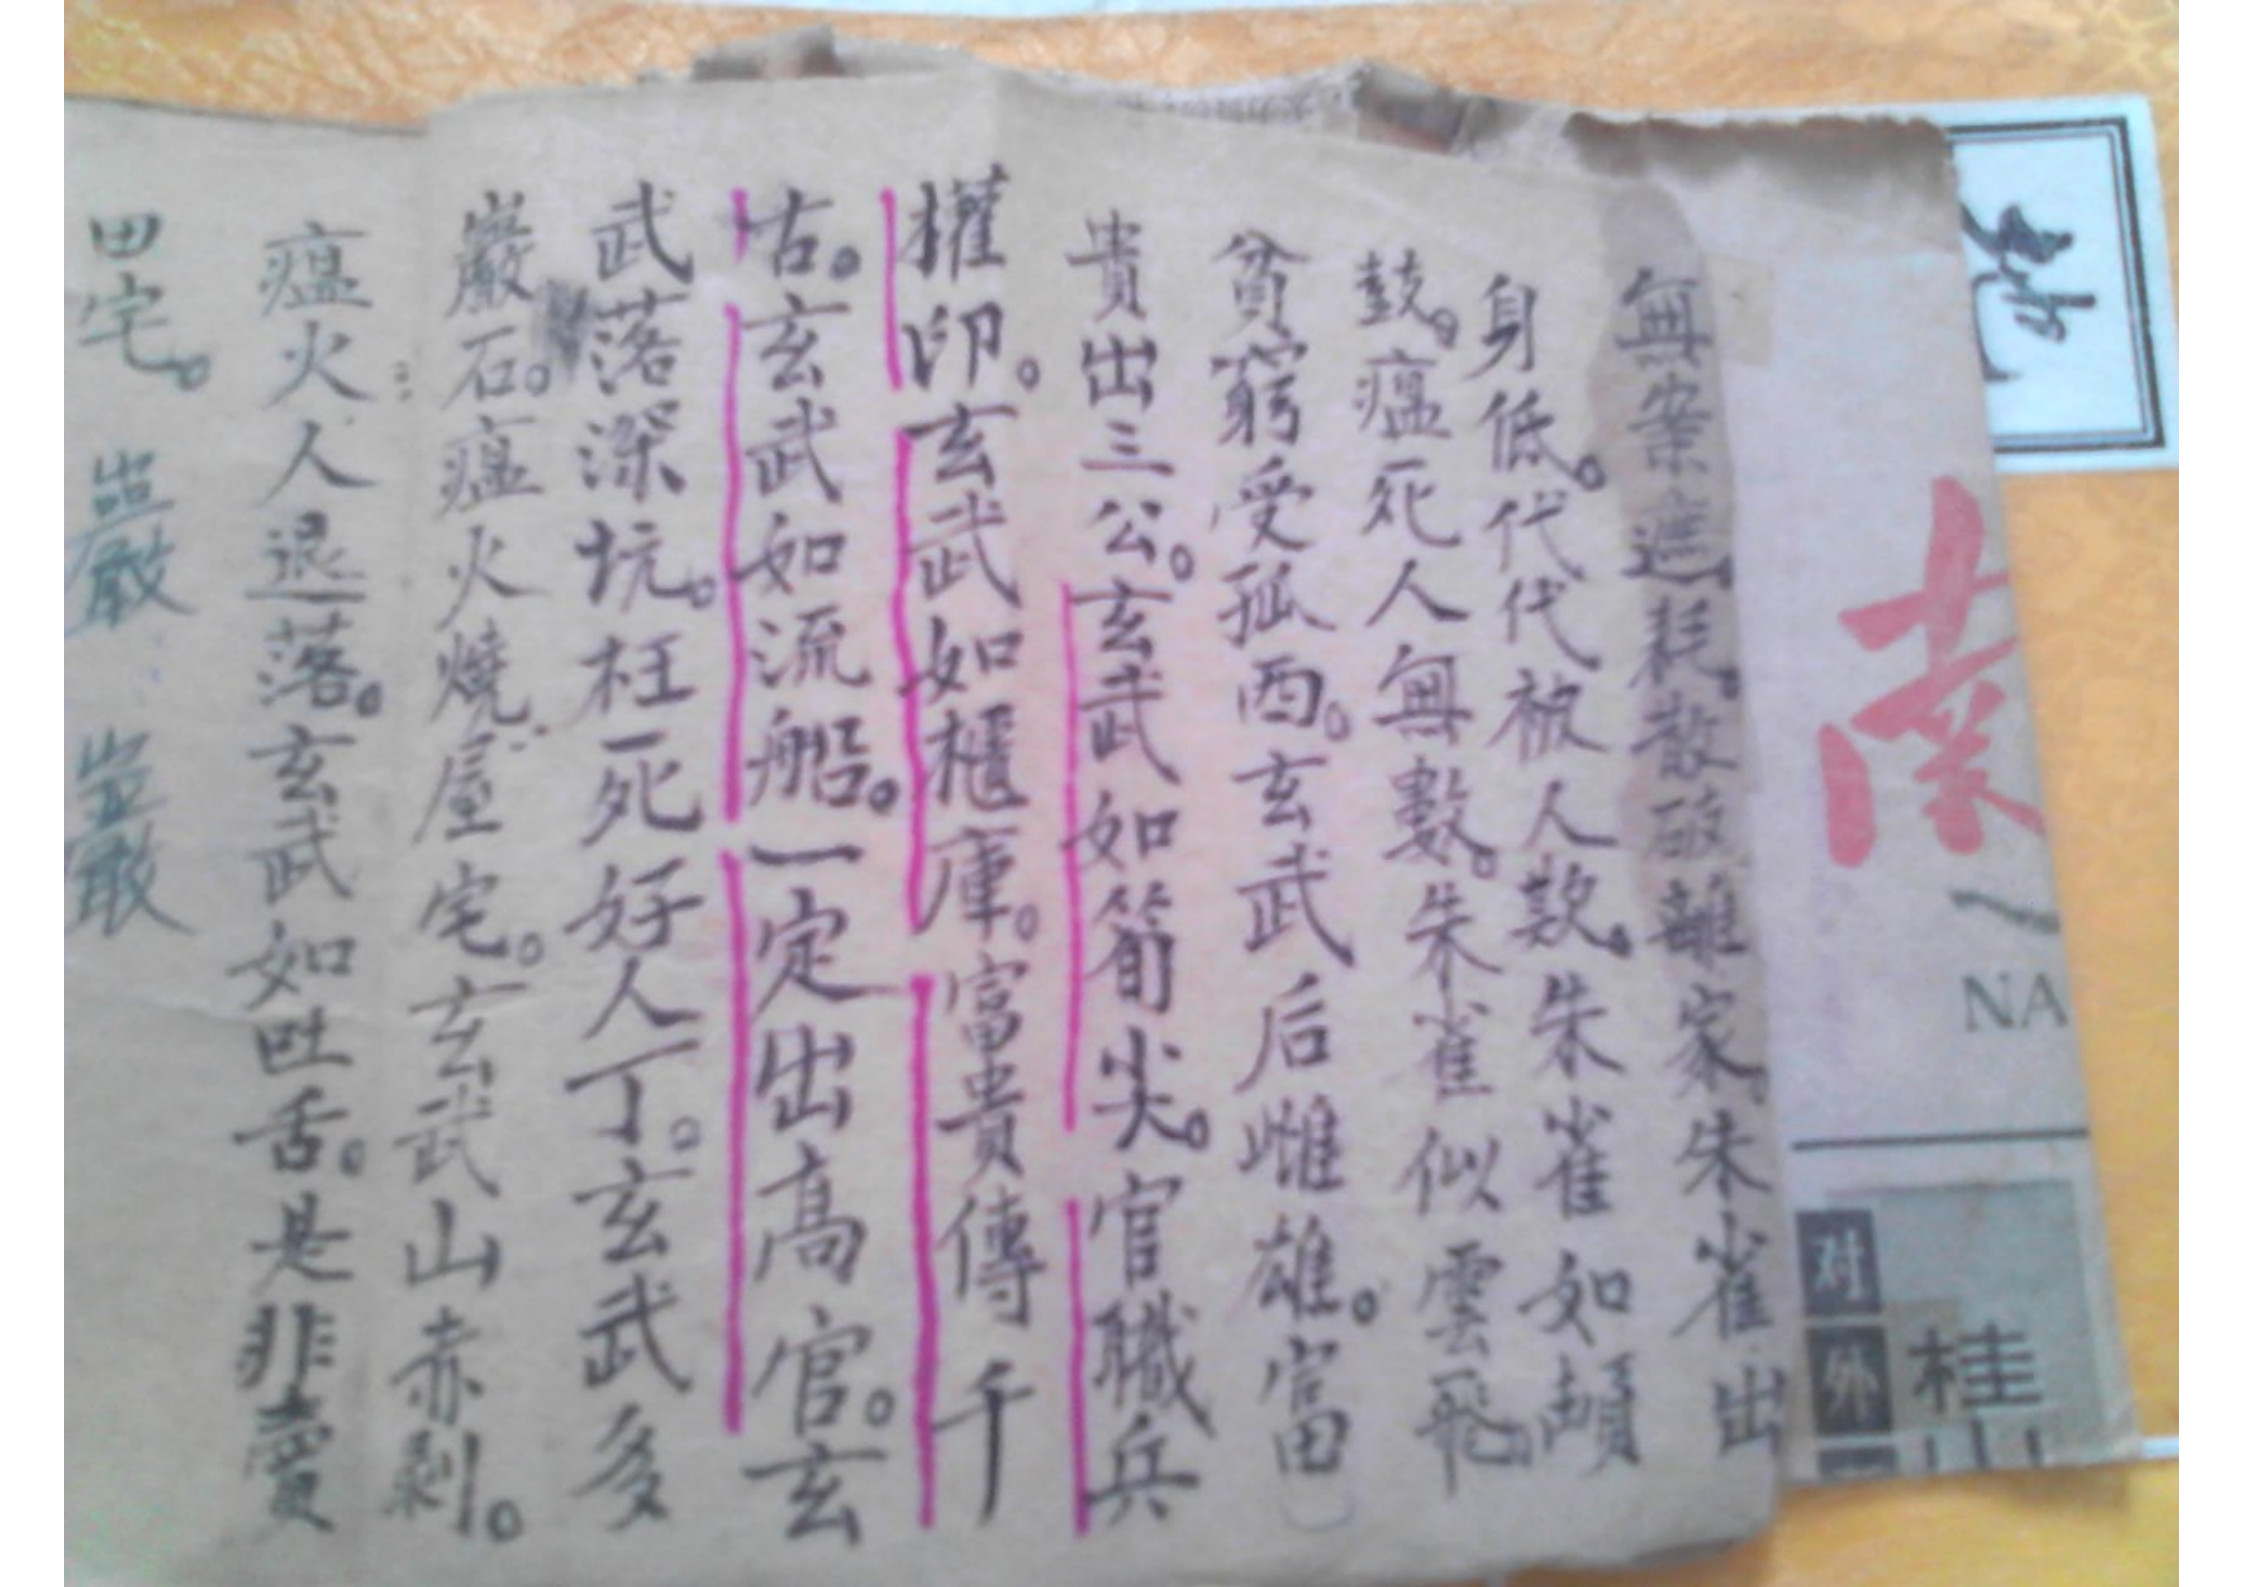 無案遮耗。散破離家。朱雀出
身低。代代被人欺。朱雀如頭
鼓。瘟死人無數。朱雀似雲飛。
貧窮受孤西。玄武后雌雄。富
貴出三公。玄武如筍尖。官職兵
權印。玄武如櫃庫。富貴傳千
古。玄武如流船。一定出高官。玄
武落深坑。枉死好人丁。玄武多
巖石。瘟火燒屋宅。玄武山赤剝。
瘟火人退落。玄武如吐舌。是非賣
田宅。巖 巖
南
NA
对
外
桂